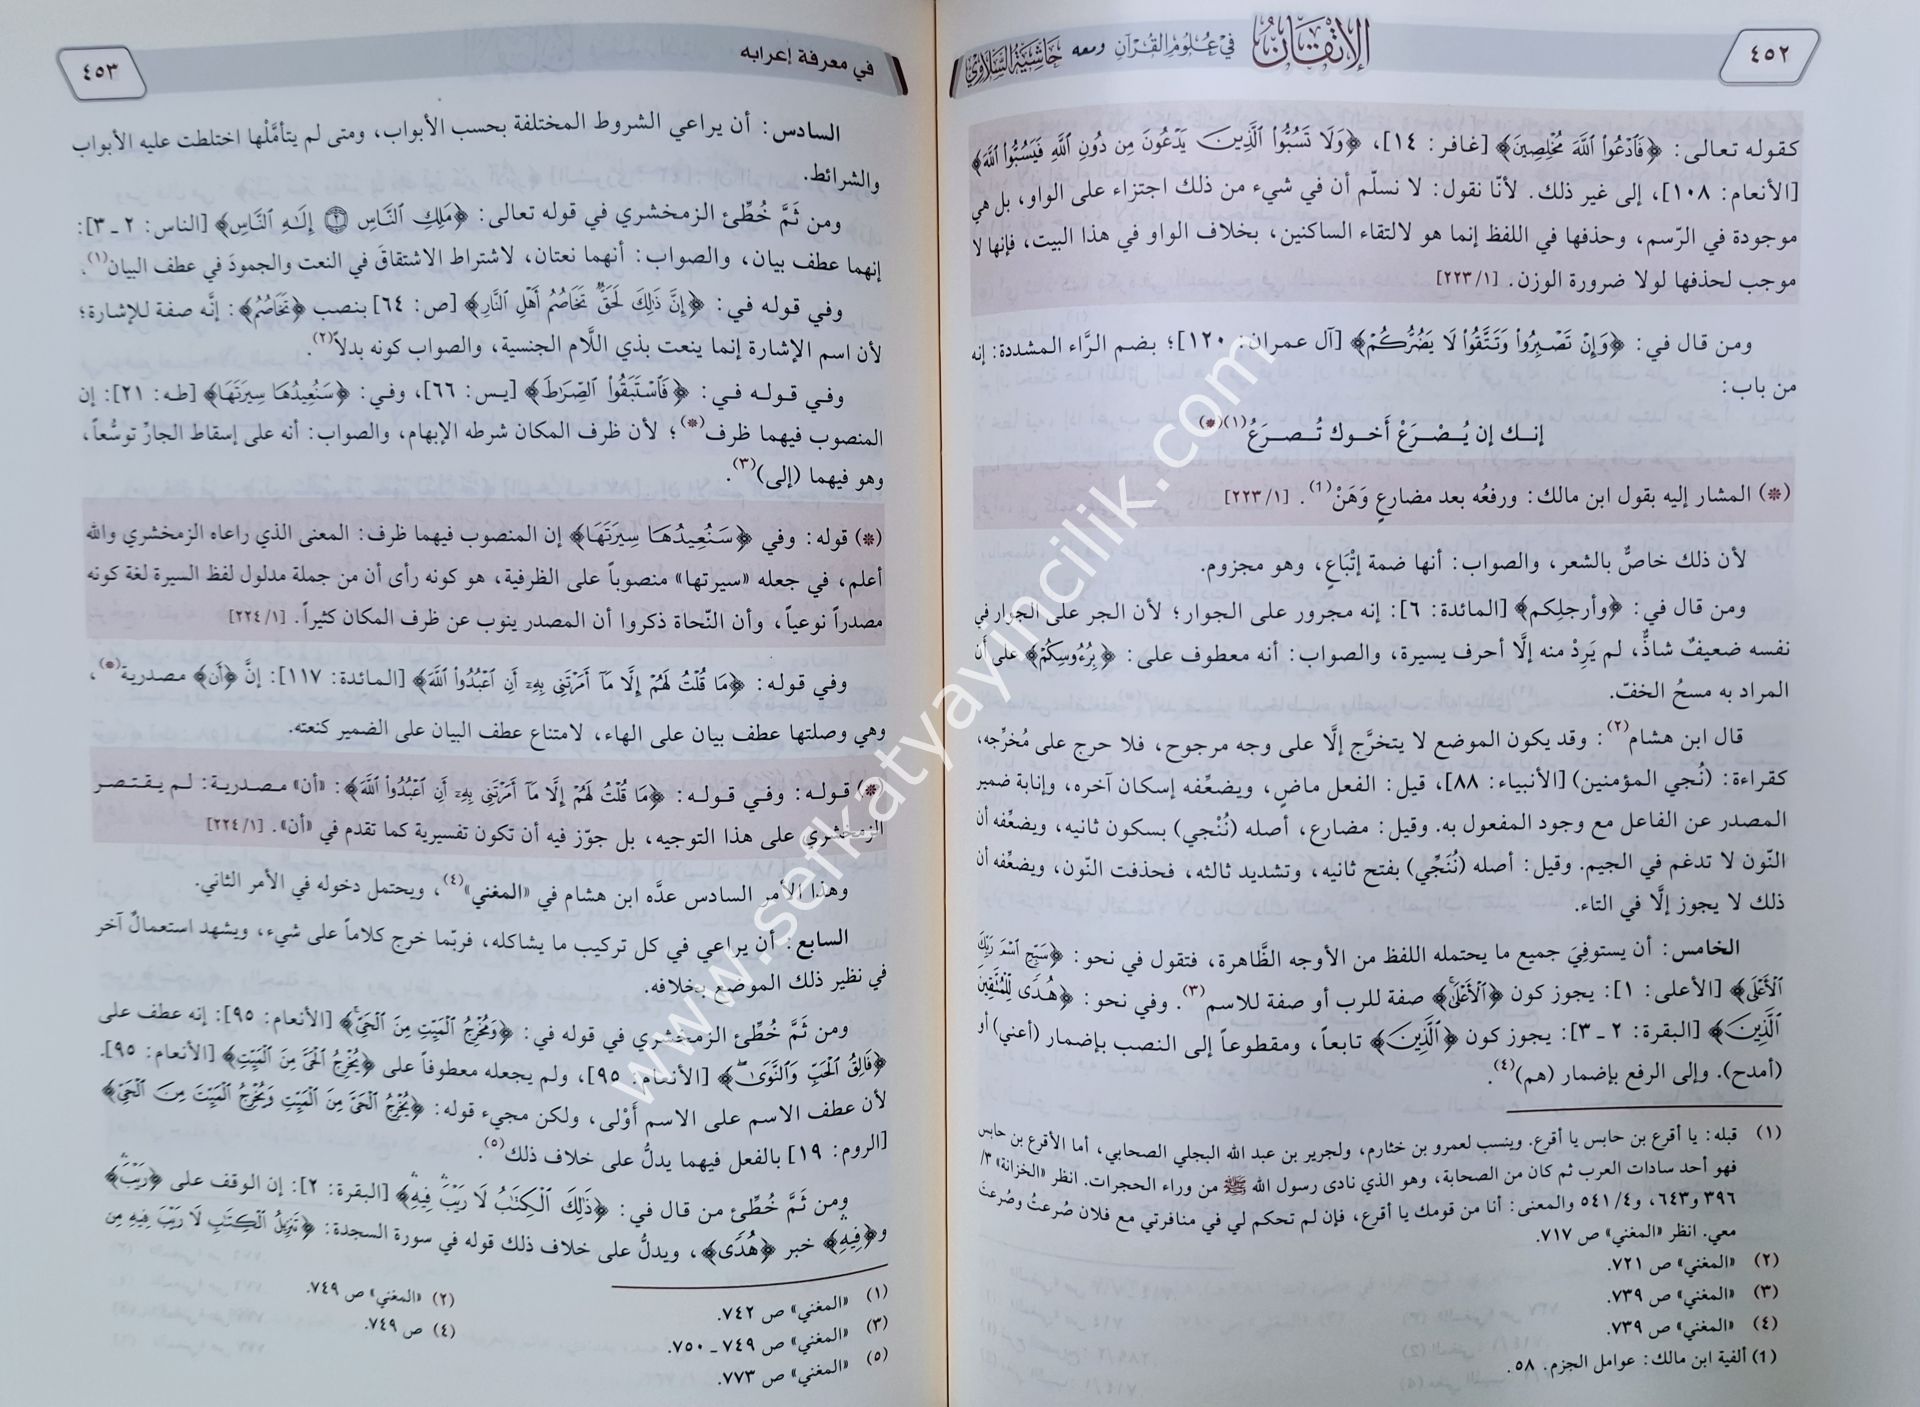 ٤٥٢
الإتقان في علوم القرآن ومعه حاشية السلاوي
كقوله تعالى: ﴿فَٱدْعُوا۟ ٱللَّهَ مُخْلِصِينَ﴾ [غافر: ١٤]، ﴿وَلَا تَسُبُّوا۟ ٱلَّذِينَ يَدْعُونَ مِن دُونِ ٱللَّهِ فَيَسُبُّوا۟ ٱللَّهَ﴾
[الأنعام: ١٠٨]، إلى غير ذلك. لأنّا نقول: لا نسلّم أن في شيء من ذلك اجتزاء على الواو، بل هي
موجودة في الرّسم، وحذفها في اللفظ إنما هو لالتقاء الساكنين، بخلاف الواو في هذا البيت، فإنها لا
موجب لحذفها لولا ضرورة الوزن. [١/ ٢٢٣]
ومن قال في: ﴿وَإِن تَصْبِرُوا۟ وَتَتَّقُوا۟ لَا يَضُرُّكُمْ﴾ [آل عمران: ١٢٠]؛ بضم الرَّاء المشددة: إنه
من باب:
إنـك إن يُـصْـرَعْ أَخـوك تُـصـرَعُ(١)(*)
(*) المشار إليه بقول ابن مالك: ورفعُه بعد مضارعٍ وَهَنْ(1). [١/ ٢٢٣]
لأن ذلك خاصٌّ بالشعر، والصواب: أنها ضمة إتْباعٍ، وهو مجزوم.
ومن قال في: ﴿وأرجلِكم﴾ [المائدة: ٦]: إنه مجرور على الجوار؛ لأن الجر على الجوار في
نفسه ضعيفٌ شاذٌّ، لم يَرِدْ منه إلَّا أحرف يسيرة، والصواب: أنه معطوف على: ﴿بِرُءُوسِكُمْ﴾ على أن
المراد به مسحُ الخفّ.
قال ابن هشام(٢): وقد يكون الموضع لا يتخرَّج إلَّا على وجه مرجوح، فلا حرج على مُخرِّجه،
كقراءة: (نُجي المؤمنين) [الأنبياء: ٨٨]، قيل: الفعل ماضٍ، ويضعِّفه إسكان آخره، وإنابة ضمير
المصدر عن الفاعل مع وجود المفعول به. وقيل: مضارع، أصله (نُنْجي) بسكون ثانيه، ويضعِّفه أن
النّون لا تدغم في الجيم. وقيل: أصله (نُنَجِّي) بفتح ثانيه، وتشديد ثالثه، فحذفت النّون، ويضعِّفه أن
ذلك لا يجوز إلَّا في التاء.
الخامس: أن يستوفِيَ جميع ما يحتمله اللفظ من الأوجه الظَّاهرة، فتقول في نحو: ﴿سَبِّحِ ٱسْمَ رَبِّكَ
ٱلْأَعْلَى﴾ [الأعلى: ١]: يجوز كون ﴿ٱلْأَعْلَى﴾ صفة للرب أو صفة للاسم(٣). وفي نحو: ﴿هُدًى لِّلْمُتَّقِينَ
ٱلَّذِينَ﴾ [البقرة: ٢ ـ ٣]: يجوز كون ﴿ٱلَّذِينَ﴾ تابعاً، ومقطوعاً إلى النصب بإضمار (أعني) أو
(أمدح). وإلى الرفع بإضمار (هم)(٤).
(١) قبله: يا أقرع بن حابس يا أقرع. وينسب لعمرو بن خثارم، ولجرير بن عبد الله البجلي الصحابي، أما الأقرع بن حابس
فهو أحد سادات العرب ثم كان من الصحابة، وهو الذي نادى رسول الله ﷺ من وراء الحجرات. انظر «الخزانة» ٣/
٣٩٦ و٦٤٣، و٤/ ٥٤١ والمعنى: أنا من قومك يا أقرع، فإن لم تحكم لي في منافرتي مع فلان صُرعتُ وصُرعتَ
معي. انظر «المغني» ص ٧١٧.
(٢) «المغني» ص ٧٢١.
(٣) «المغني» ص ٧٣٩.
(٤) «المغني» ص ٧٣٩.
(1) ألفية ابن مالك: عوامل الجزم. ٥٨.
في معرفة إعرابه
٤٥٣
السادس: أن يراعي الشروط المختلفة بحسب الأبواب، ومتى لم يتأمَّلْها اختلطت عليه الأبواب
والشرائط.
ومن ثَمَّ خُطِّئ الزمخشري في قوله تعالى: ﴿مَلِكِ ٱلنَّاسِ ٢ إِلَٰهِ ٱلنَّاسِ﴾ [الناس: ٢ ـ ٣]:
إنهما عطف بيان، والصواب: أنهما نعتان، لاشتراط الاشتقاقَ في النعت والجمودَ في عطف البيان(١).
وفي قوله في: ﴿إِنَّ ذَٰلِكَ لَحَقٌّ تَخَاصُمُ أَهْلِ ٱلنَّارِ﴾ [ص: ٦٤] بنصب ﴿تَخَاصُمُ﴾: إنَّه صفة للإشارة؛
لأن اسم الإشارة إنما ينعت بذي اللَّام الجنسية، والصواب كونه بدلاً(٢).
وفي قوله في: ﴿فَٱسْتَبَقُوا۟ ٱلصِّرَٰطَ﴾ [يس: ٦٦]، وفي: ﴿سَنُعِيدُهَا سِيرَتَهَا﴾ [طه: ٢١]: إن
المنصوب فيهما ظرف(*)؛ لأن ظرف المكان شرطه الإبهام، والصواب: أنه على إسقاط الجارِّ توسُّعاً،
وهو فيهما (إلى)(٣).
(*) قوله: وفي ﴿سَنُعِيدُهَا سِيرَتَهَا﴾ إن المنصوب فيهما ظرف: المعنى الذي راعاه الزمخشري والله
أعلم، في جعله «سيرتها» منصوباً على الظرفية، هو كونه رأى أن من جملة مدلول لفظ السيرة لغة كونه
مصدراً نوعياً، وأن النّحاة ذكروا أن المصدر ينوب عن ظرف المكان كثيراً. [١/ ٢٢٤]
وفي قوله: ﴿مَا قُلْتُ لَهُمْ إِلَّا مَآ أَمَرْتَنِى بِهِۦٓ أَنِ ٱعْبُدُوا۟ ٱللَّهَ﴾ [المائدة: ١١٧]: إنَّ ﴿أَن﴾ مصدرية(*)،
وهي وصلتها عطف بيان على الهاء، لامتناع عطف البيان على الضمير كنعته.
(*) قوله: وفي قوله: ﴿مَا قُلْتُ لَهُمْ إِلَّا مَآ أَمَرْتَنِى بِهِۦٓ أَنِ ٱعْبُدُوا۟ ٱللَّهَ﴾: «أن» مصدرية: لم يقتصر
الزمخشري على هذا التوجيه، بل جوّز فيه أن تكون تفسيرية كما تقدم في «أن». [١/ ٢٢٤]
وهذا الأمر السادس عدَّه ابن هشام في «المغني»(٤)، ويحتمل دخوله في الأمر الثاني.
السابع: أن يراعي في كل تركيب ما يشاكله، فربّما خرج كلاماً على شيء، ويشهد استعمالٌ آخر
في نظير ذلك الموضع بخلافه.
ومن ثَمَّ خُطِّئ الزمخشري في قوله في: ﴿وَمُخْرِجُ ٱلْمَيِّتِ مِنَ ٱلْحَىِّ﴾ [الأنعام: ٩٥]: إنه عطف على
﴿فَالِقُ ٱلْحَبِّ وَٱلنَّوَىٰ﴾ [الأنعام: ٩٥]، ولم يجعله معطوفاً على ﴿يُخْرِجُ ٱلْحَىَّ مِنَ ٱلْمَيِّتِ﴾ [الأنعام: ٩٥]،
لأن عطف الاسم على الاسم أَوْلى، ولكن مجيء قوله: ﴿يُخْرِجُ ٱلْحَىَّ مِنَ ٱلْمَيِّتِ وَيُخْرِجُ ٱلْمَيِّتَ مِنَ ٱلْحَىِّ﴾
[الروم: ١٩] بالفعل فيهما يدلُّ على خلاف ذلك(٥).
ومن ثَمَّ خُطِّئ من قال في: ﴿ذَٰلِكَ ٱلْكِتَٰبُ لَا رَيْبَ فِيهِ﴾ [البقرة: ٢]: إن الوقف على ﴿رَيْبَ﴾
و﴿فِيهِ﴾ خبر ﴿هُدًى﴾، ويدلُّ على خلاف ذلك قوله في سورة السجدة: ﴿تَنزِيلُ ٱلْكِتَٰبِ لَا رَيْبَ فِيهِ مِن
(١) «المغني» ص ٧٤٢. (٢) «المغني» ص ٧٤٩.
(٣) «المغني» ص ٧٤٩ ـ ٧٥٠. (٤) ص ٧٤٩.
(٥) «المغني» ص ٧٧٣.
www.sefkatyayincilik.com